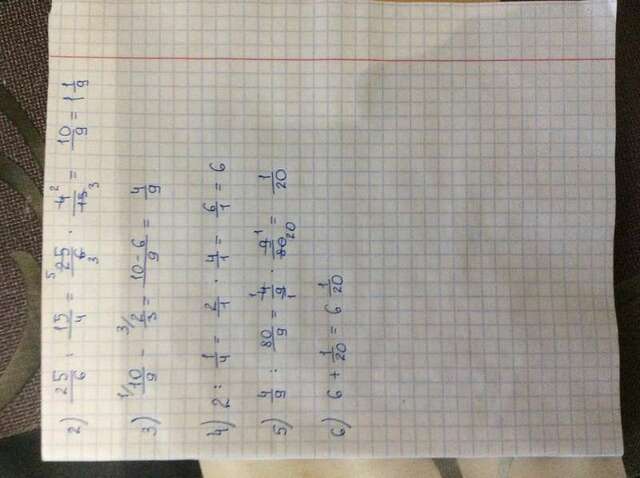 2) 25/6 : 15/4 = 5 25/6 3 · 4 2/15 3 = 10/9 = 1 1/9
3) 1/ 10/9 - 3/ 2/3 = 10-6/9 = 4/9
4) 2 : 1/4 = 2/1 · 4/1 = 6/1 = 6
5) 4/9 : 80/9 = 1 4/9 1 · 9 1/80 20 = 1/20
6) 6 + 1/20 = 6 1/20